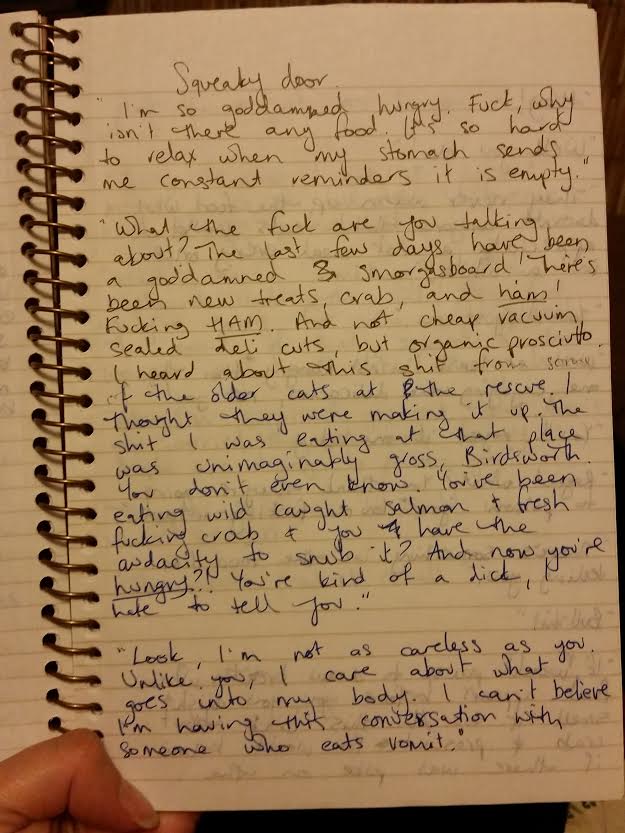 Squeaky door.
"I'm so goddamned hungry. Fuck, why
isn't there any food. It's so hard
to relax when my stomach sends
me constant reminders it is empty."
"What the fuck are you talking
about? The last few days have been
a goddamned smorgasboard! There's
been new treats, crab, and ham!
Fucking HAM. And not cheap vacuum
sealed deli cuts, but organic prosciutto.
I heard about this shit from some
of the older cats at the rescue. I
thought they were making it up. The
shit I was eating at that place
was unimaginably gross, Birdsworth.
You don't even know. You've been
eating wild caught salmon + fresh
fucking crab + you have the
audacity to snub it? And now you're
hungry?! You're kind of a dick, I
hate to tell you."
"Look, I'm not as careless as you.
Unlike you, I care about what
goes into my body. I can't believe
I'm having this conversation with
someone who eats vomit."